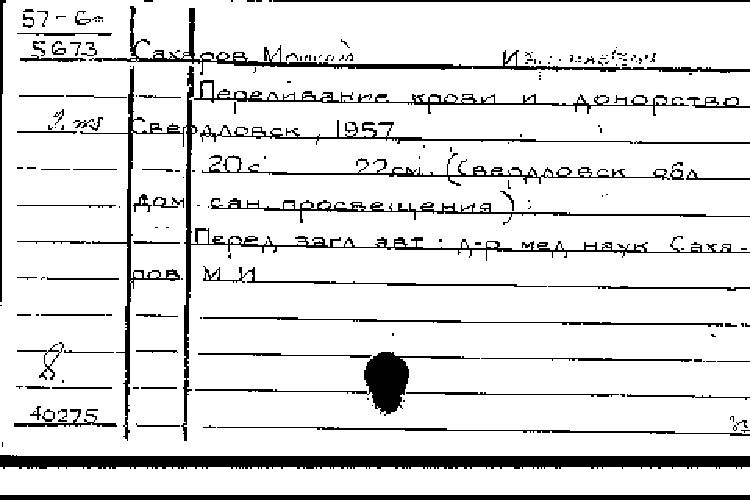 57-6
5673
Сахаров,
Переливание крови и донорство
Свердловск, 1957
20 с 22 см. (Свердловск обл
дом сан. просвещения)
Перед загл авт: д-р мед наук Саха-
ров М И
8.
40275